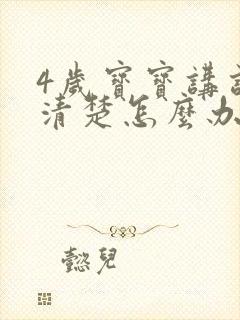 4歲寶寶講
清楚怎麼办
懿兒